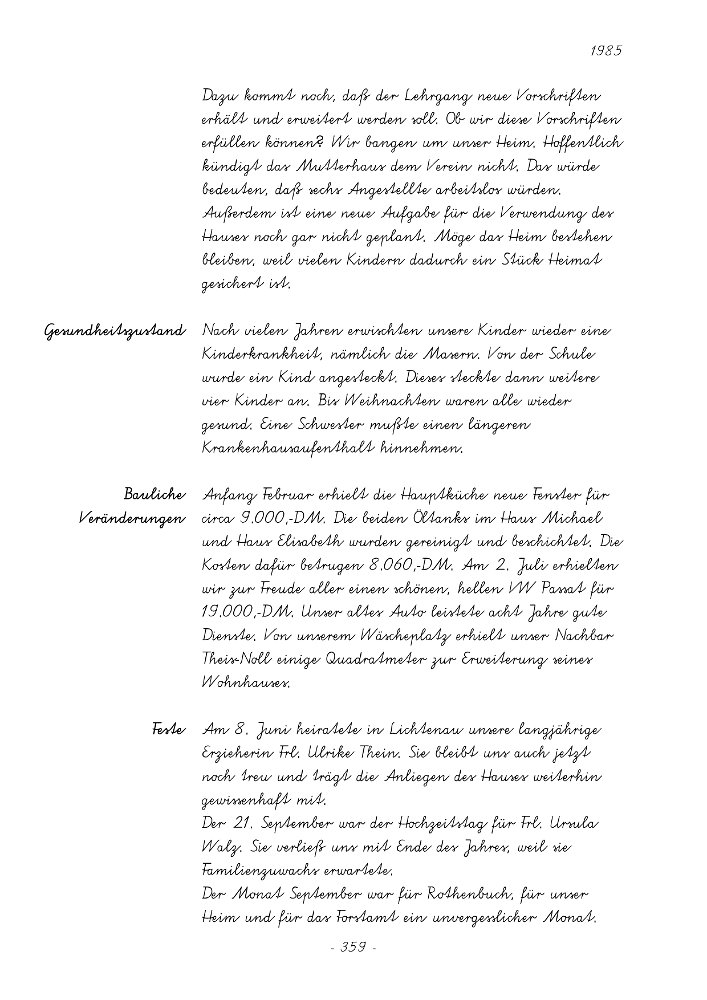 1985
Dazu kommt noch, daß der Lehrgang neue Vorschriften
erhält und erweitert werden soll. Ob wir diese Vorschriften
erfüllen können? Wir bangen um unser Heim. Hoffentlich
kündigt das Mutterhaus dem Verein nicht. Das würde
bedeuten, daß sechs Angestellte arbeitslos würden.
Außerdem ist eine neue Aufgabe für die Verwendung des
Hauses noch gar nicht geplant. Möge das Heim bestehen
bleiben, weil vielen Kindern dadurch ein Stück Heimat
gesichert ist.
Gesundheitszustand Nach vielen Jahren erwischten unsere Kinder wieder eine
Kinderkrankheit, nämlich die Masern. Von der Schule
wurde ein Kind angesteckt. Dieses steckte dann weitere
vier Kinder an. Bis Weihnachten waren alle wieder
gesund. Eine Schwester mußte einen längeren
Krankenhausaufenthalt hinnehmen.
Bauliche Anfang Februar erhielt die Hauptküche neue Fenster für
Veränderungen circa 9.000,-DM. Die beiden Öltanks im Haus Michael
und Haus Elisabeth wurden gereinigt und beschichtet. Die
Kosten dafür betrugen 8.060,-DM. Am 2. Juli erhielten
wir zur Freude aller einen schönen, hellen VW Passat für
19.000,-DM. Unser altes Auto leistete acht Jahre gute
Dienste. Von unserem Wäscheplatz erhielt unser Nachbar
Theis-Noll einige Quadratmeter zur Erweiterung seines
Wohnhauses.
Feste Am 8. Juni heiratete in Lichtenau unsere langjährige
Erzieherin Frl. Ulrike Thein. Sie bleibt uns auch jetzt
noch treu und trägt die Anliegen des Hauses weiterhin
gewissenhaft mit.
Der 21. September war der Hochzeitstag für Frl. Ursula
Walz. Sie verließ uns mit Ende des Jahres, weil sie
Familienzuwachs erwartete.
Der Monat September war für Rothenbuch, für unser
Heim und für das Forstamt ein unvergesslicher Monat.
- 359 -